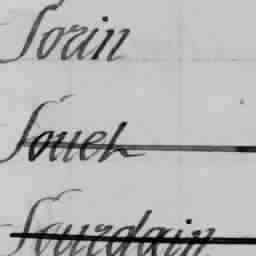 Sorin
Souch
Sourdain